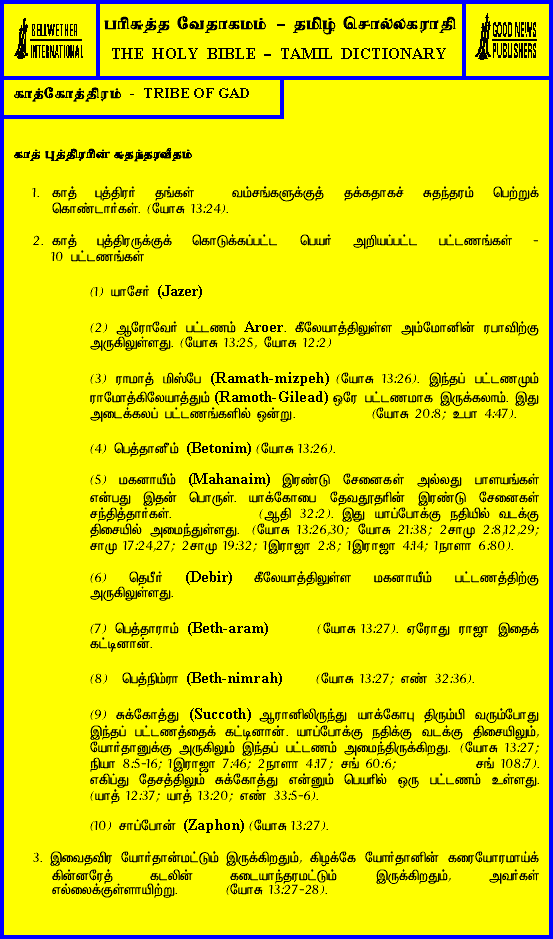 BELLWETHER
INTERNATIONAL
பரிசுத்த வேதாகமம் – தமிழ் சொல்லகராதி
THE HOLY BIBLE – TAMIL DICTIONARY
GOOD NEWS
PUBLISHERS
காத்கோத்திரம் - TRIBE OF GAD
காத் புத்திரரின் சுதந்தரவீதம்
1. காத் புத்திரர் தங்கள் வம்சங்களுக்குத் தக்கதாகச் சுதந்தரம் பெற்றுக்
கொண்டார்கள். (யோசு 13:24).
2. காத் புத்திரருக்குக் கொடுக்கப்பட்ட பெயர் அறியப்பட்ட பட்டணங்கள் -
10 பட்டணங்கள்
(1) யாசேர் (Jazer)
(2) ஆரோவேர் பட்டணம் Aroer. கீலேயாத்திலுள்ள அம்மோனின் ரபாவிற்கு
அருகிலுள்ளது. (யோசு 13:25, யோசு 12:2)
(3) ராமாத் மிஸ்பே (Ramath-mizpeh) (யோசு 13:26). இந்தப் பட்டணமும்
ராமோத்கிலேயாத்தும் (Ramoth-Gilead) ஒரே பட்டணமாக இருக்கலாம். இது
அடைக்கலப் பட்டணங்களில் ஒன்று. (யோசு 20:8; உபா 4:47).
(4) பெத்தானீம் (Betonim) (யோசு 13:26).
(5) மகனாயீம் (Mahanaim) இரண்டு சேனைகள் அல்லது பாளயங்கள்
என்பது இதன் பொருள். யாக்கோபை தேவதூதரின் இரண்டு சேனைகள்
சந்தித்தார்கள். (ஆதி 32:2). இது யாப்போக்கு நதியில் வடக்கு
திசையில் அமைந்துள்ளது. (யோசு 13:26,30; யோசு 21:38; 2சாமு 2:8,12,29;
சாமு 17:24,27; 2சாமு 19:32; 1இராஜா 2:8; 1இராஜா 4:14; 1நாளா 6:80).
(6) தெபீர் (Debir) கீலேயாத்திலுள்ள மகனாயீம் பட்டணத்திற்கு
அருகிலுள்ளது.
(7) பெத்தாராம் (Beth-aram) (யோசு 13:27). ஏரோது ராஜா இதைக்
கட்டினான்.
(8) பெத்நிம்ரா (Beth-nimrah) (யோசு 13:27; எண் 32:36).
(9) சுக்கோத்து (Succoth) ஆரானிலிருந்து யாக்கோபு திரும்பி வரும்போது
இந்தப் பட்டணத்தைக் கட்டினான். யாப்போக்கு நதிக்கு வடக்கு திசையிலும்,
யோர்தானுக்கு அருகிலும் இந்தப் பட்டணம் அமைந்திருக்கிறது. (யோசு 13:27;
நியா 8:5-16; 1இராஜா 7:46; 2நாளா 4:17; சங் 60:6; சங் 108:7).
எகிப்து தேசத்திலும் சுக்கோத்து என்னும் பெயரில் ஒரு பட்டணம் உள்ளது.
(யாத் 12:37; யாத் 13:20; எண் 33:5-6).
(10) சாப்போன் (Zaphon) (யோசு 13:27).
3. இவைதவிர யோர்தான்மட்டும் இருக்கிறதும், கிழக்கே யோர்தானின் கரையோரமாய்க்
கின்னரேத் கடலின் கடையாந்தரமட்டும் இருக்கிறதும், அவர்கள்
எல்லைக்குள்ளாயிற்று. (யோசு 13:27-28).